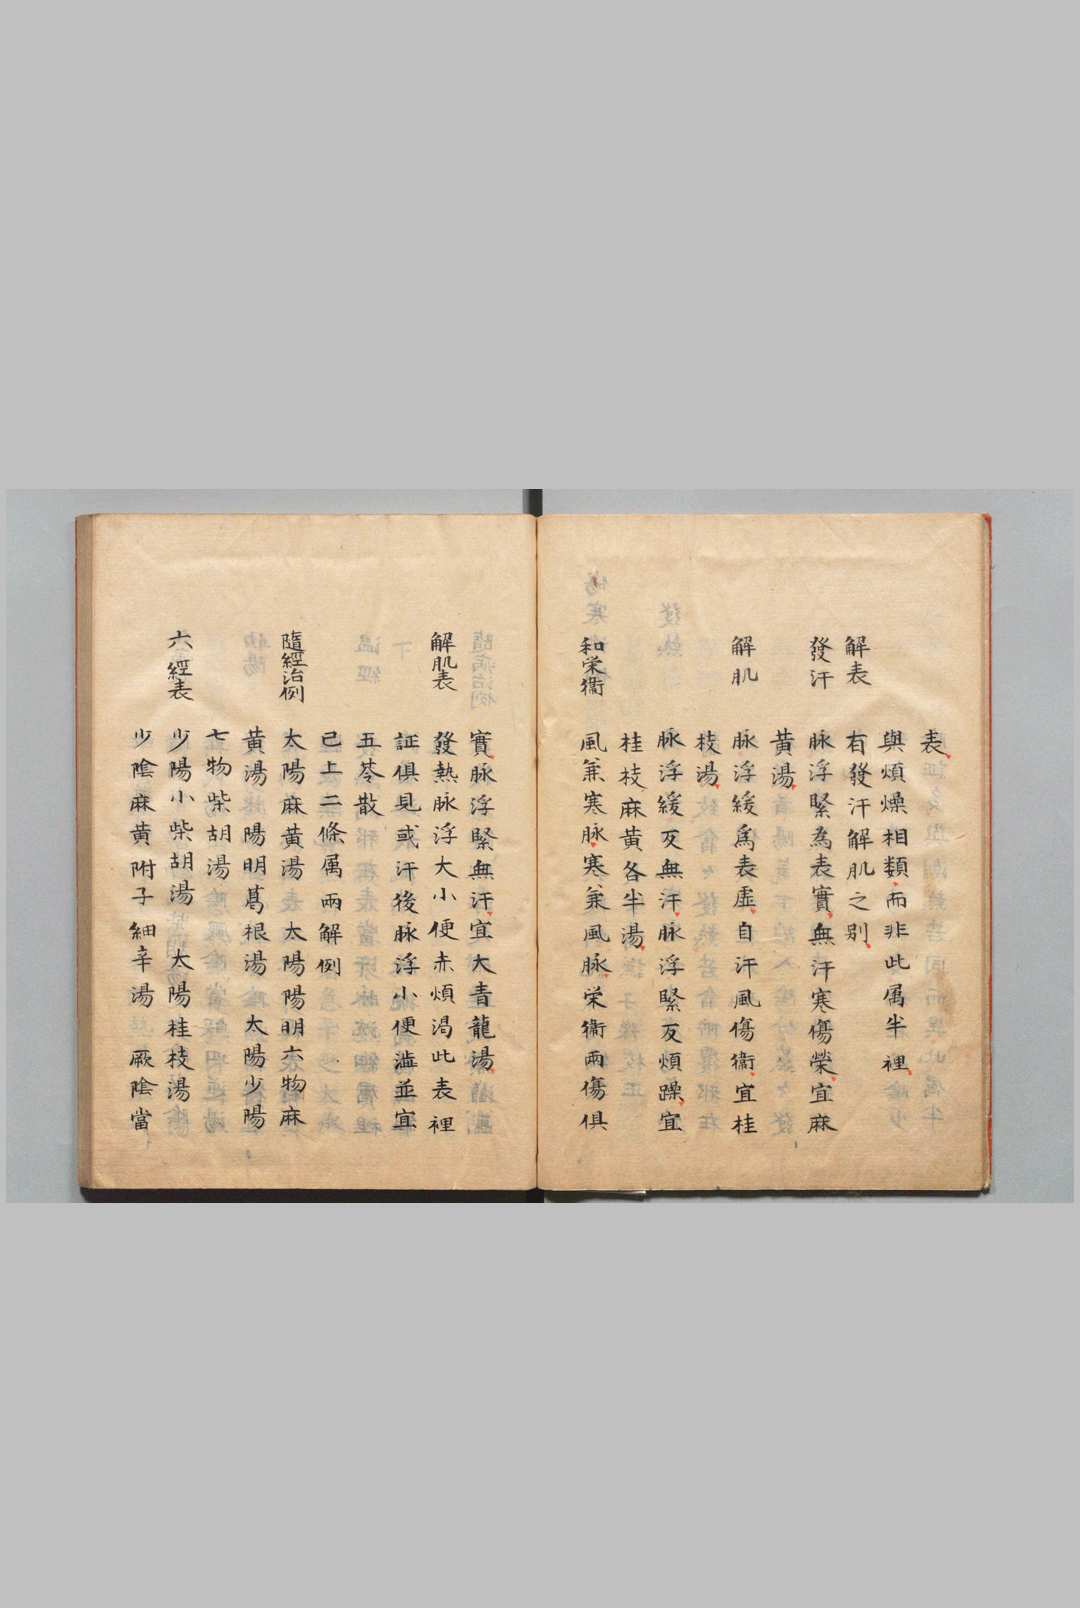 表
與煩燥相類而非此属半裡
解表
有發汗解肌之別
發汗
脉浮緊為表實無汗寒傷榮宜麻
黄湯
解肌
脉浮緩爲表虛自汗風傷衞宜桂
枝湯
脉浮緩反無汗脉浮緊反煩躁宜
桂枝麻黄各半湯
和栄衞
風兼寒脉寒兼風脉栄衞兩傷俱
實脉浮緊無汗宜大青龍湯
解肌表
發熱脉浮大小便赤煩渇此表裡
証俱見或汗後脉浮小便澁並宜
五苓散
已上二條属兩解例
隨經治例
太陽麻黄湯 太陽陽明六物麻
黄湯 陽明葛根湯 太陽少陽
七物柴胡湯
六經表
少陽小柴胡湯 太陽桂枝湯
少陰麻黄附子細辛湯 厥陰當